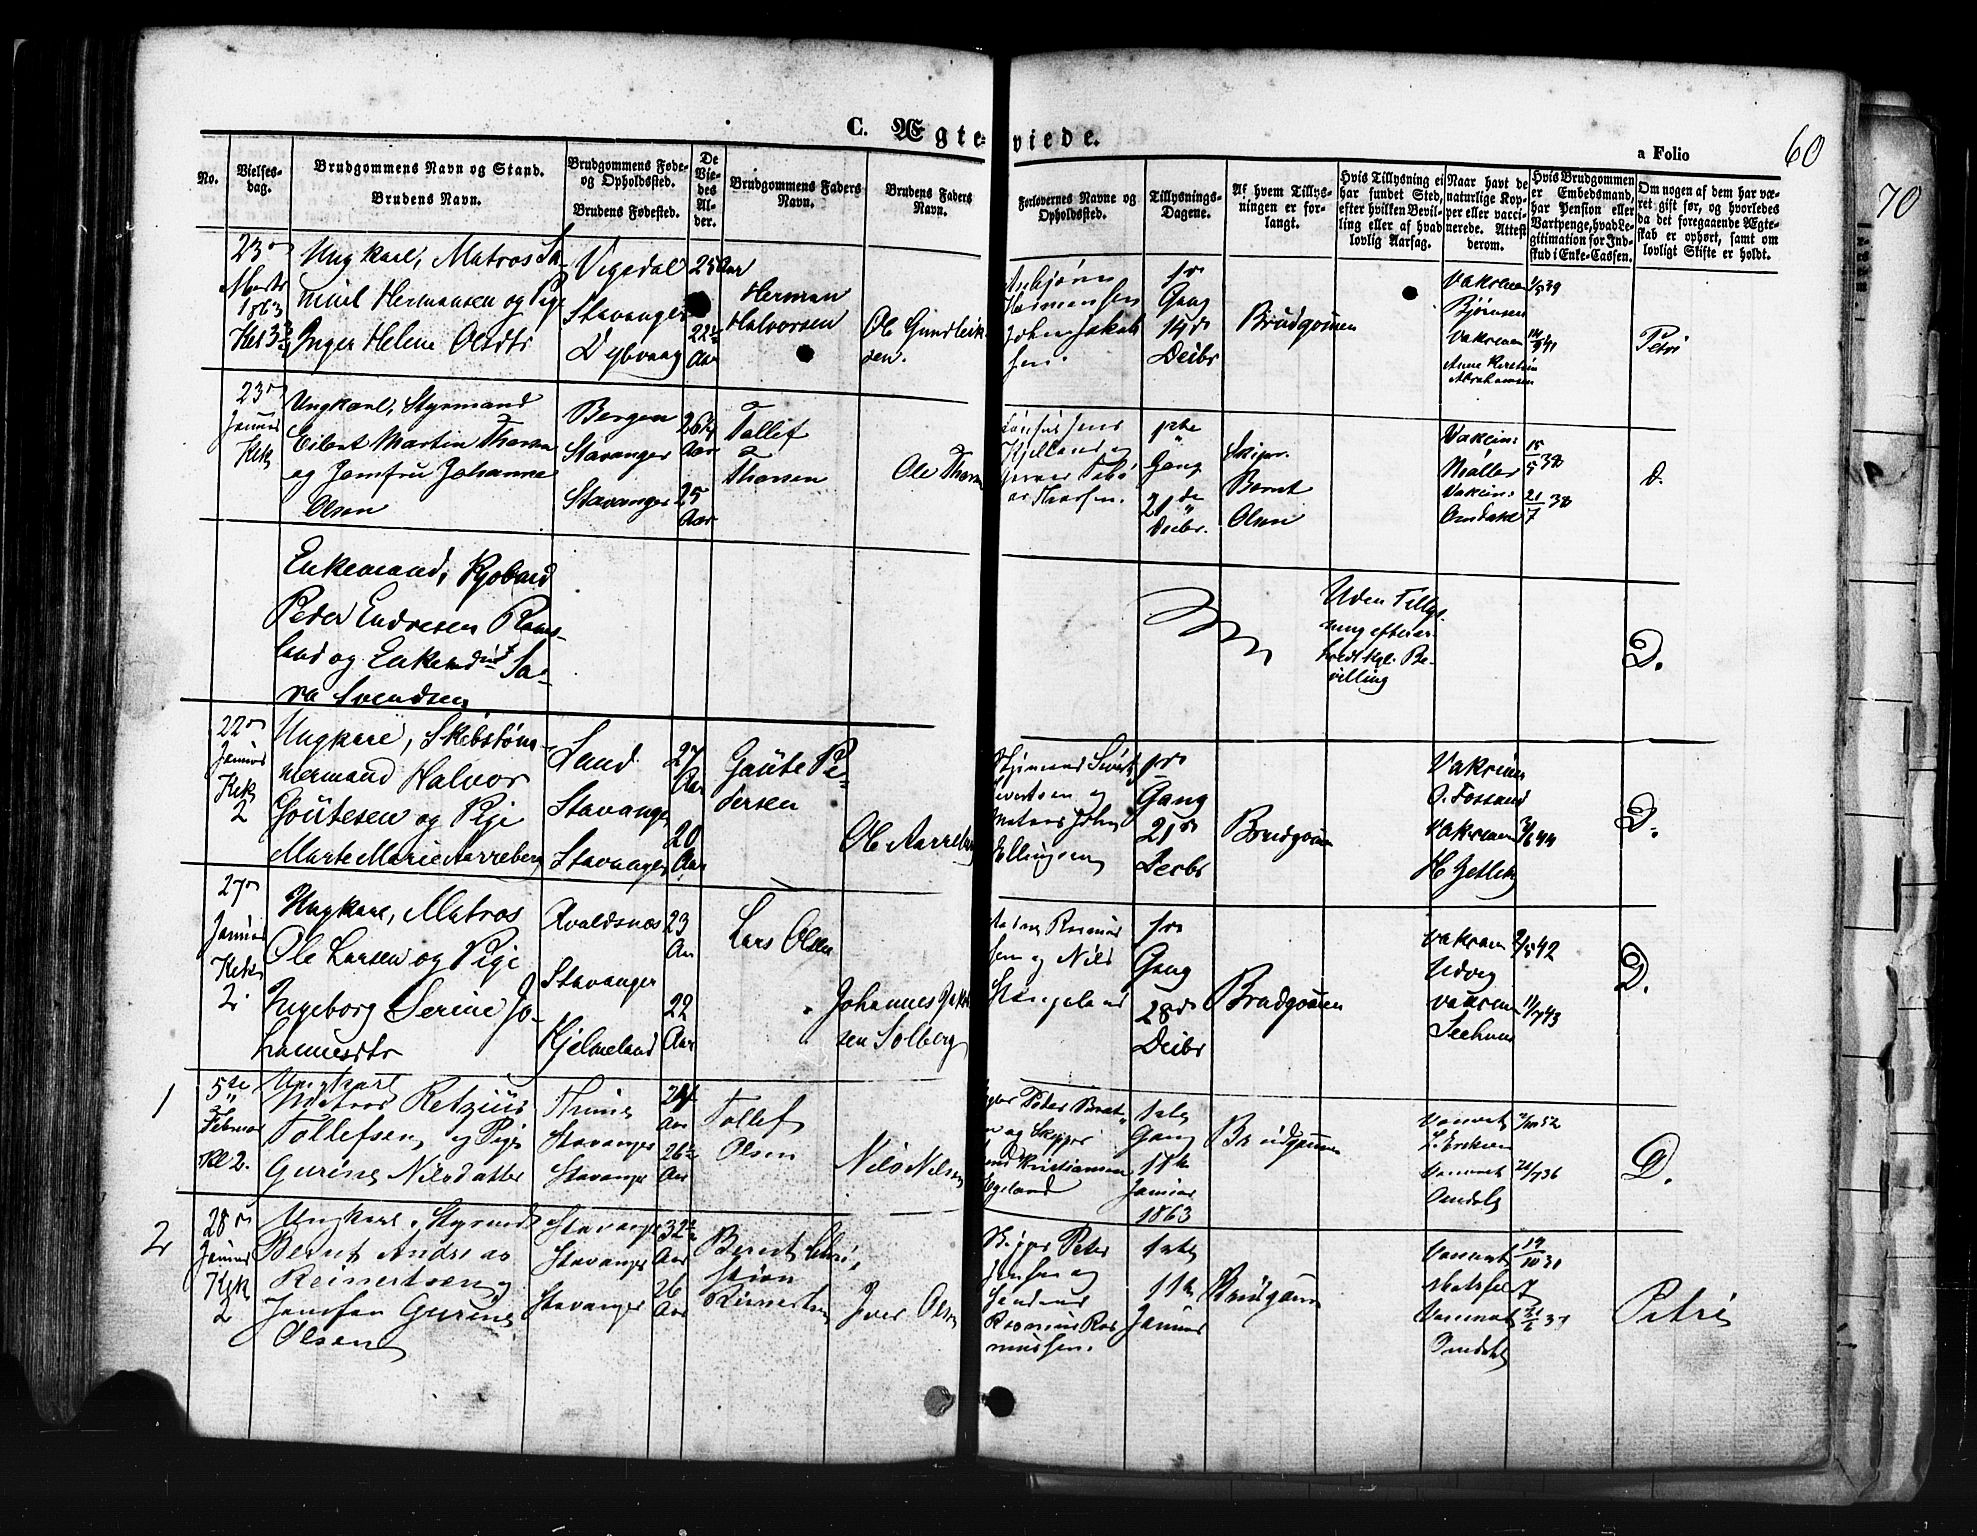 C. Ægteviede.
a Folio
60
70
No.
Vielses-
dag.
Brudgommens Navn og Stand.
Brudens Navn.
Brudgommens Føde-
og Opholdssted.
Brudens Fødested.
De
Vie-
des
Al-
der.
Brudgommens Faders
Navn.
Brudens Faders
Navn.
Forlovernes Navne og
Opholdssted.
Tillysnings-
Dagene.
Af hvem Tillys-
ningen er for-
langt.
Hvis Tillysning ei
har fundet Sted,
efter hvilken Bevil-
ling eller af hvad
lovlig Aarsag.
Naar havt de
naturlige Kop-
per eller vacci-
nerede. Attest
derom.
Hvis Brudgommen
er Embedsmand,
har Pension eller
Vartpenge, hvad Le-
gitimation for Ind-
skud i Enke-Cassen.
Om nogen af dem har væ-
ret gift før, og hvorledes
da det foregaaende Ægte-
skab er ophørt, samt om
lovligt Skifte er holdt.
23
Marts
1863
Ungkarl, Matros Sa-
muel Hermansen og Pige
Inger Helene Olsdtr
Vigedal
Stavanger
Dybvaag
25 Aar
22
Aar
Herman
Halvorsen
Ole Gundleik-
sen.
Hermansen
John Jakob
sen
Gang
14de
Decbr
Brudgommen
Vakcinen
Bjørnsen
Vakcinen
Anne Kirstin
Abrahamsen
Petri
23
Januar
Kek
Ungkarl, Styrmand
Eilert Martin Thorsen
og Jomfru Johanne
Olsen
Bergen
Stavanger
Stavanger
26
Aar
25
Aar
Tollef
Thorsen
Ole Thorsen
Gang
21de
Decbr.
Skipr.
Bernt
Olsen
Vakcin:
Møller 15/5 38
Vakcin:
Omdahl 21/7 38
D.
Enkemand,
Peder Endresen Rams-
land og Enkemadme Sa-
ra Svendsen
Uden Tillys-
ning efter er-
hvedt Kgl. Be-
villing
D.
22
Januar
Kek
2
Ungkarl, Skibstøm-
mermand Halvor
Goutesen og Pige
Marte Marie Aarreberg
Sand
Stavanger
Stavanger
27
Aar
20
Aar
Gaute Pe-
dersen
Ole Aarreberg
Sivertsen og
Matros John
Ellingsen
Gang
21de
Decbr
Brudgommen
Vakcinen
O. Fossand
Vakcinen 3/6 44
H. Zetlitz
D.
27
Januar
Kek
2.
Ungkarl, Matros
Ole Larsen og Pige
Ingeborg Serine Jo-
hannesdtr
Avaldsnæs
Stavanger
Hjelmeland
23
Aar
22
Aar
Lars Olsen
Johannes Jakob
sen Solberg
sen og Nils
Stangeland
Gang
28de
Decbr
Brudgommen
Vakcinen 9/5 42
Udveg
Vakcinen 11/7 43
D.
1
5te
Februar
Kl 2.
Ungkarl
Matros Retzius
Tollefsen og Pige
Gurine Nilsdatter
Thime
Stavanger
Stavanger
24
Aar
26
Aar
Tollef
Olsen
Nils Nilsen
Peder
og Skipper
Kristiansen
Egeland
1ste
Gang
11te
Januar
1863
Brudgommen
Vaccinat
L. Eriksen
Vaccinat 26/7 36
Omdahl
D.
2
28
Januar
Kek
2
Ungkarl, Styrmd
Bernt Andreas
Reinertsen og
Jomfru Gurine
Olsen
Stavanger
Stavanger
Stavanger
32
Aar
26
Aar
Bernt Chri-
stian
Reinertsen
Iver Olsen
Skipper Peter
Jensen og
Rasmus Ras
mussen.
1ste
11te
Januar
Brudgom
Vaccinat 19/10 31
Vaccinat 21/6 37
Omdahl
Petri